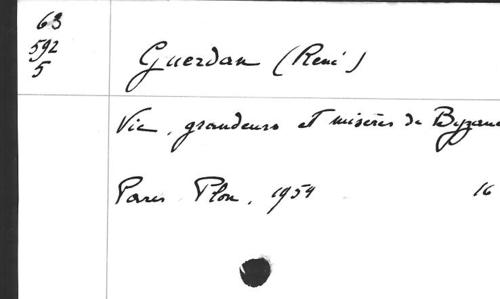 63
592
5
Guerdan (René)
Vie, grandeurs et misères de Byzance
Paris Plon, 1954 16